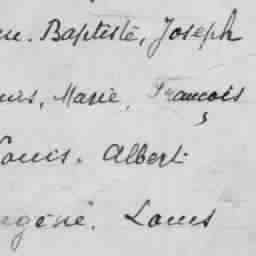 Baptiste, Joseph
Marie, François
Louis. Albert
Eugène. Louis